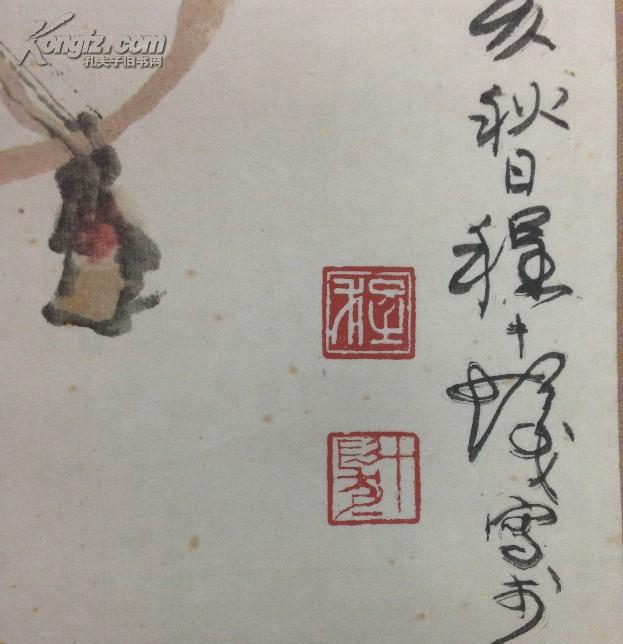 Kongfz.com
孔夫子旧书网
亥秋日程十髮寫
程
十髮